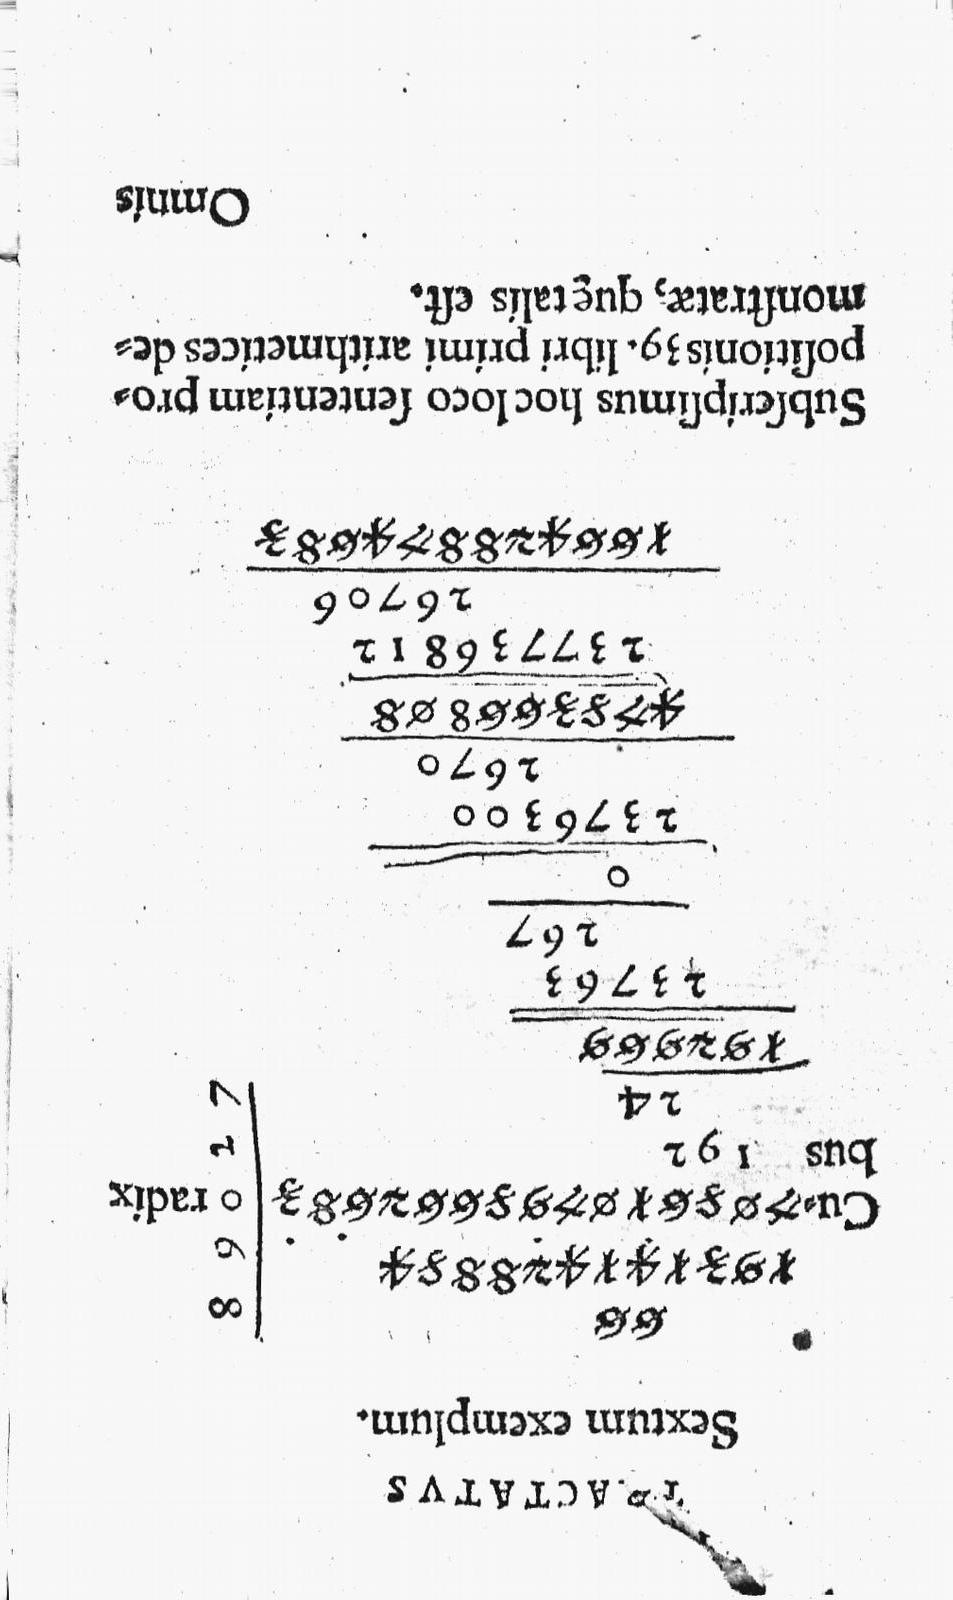 TRACTATVS
Sextum exemplum.
66
193141428854
Cu⸗ 705610795662683 | 89027 radix
bus 192
24
192969
23763
267
0
2376300
2670
475366808
237736812
26706
166428874683
Subſcripſimus hoc loco ſententiam pro⸗
poſitionis 39. libri primi arithmetices de⸗
monſtratæ, quę talis eſt.
Omnis